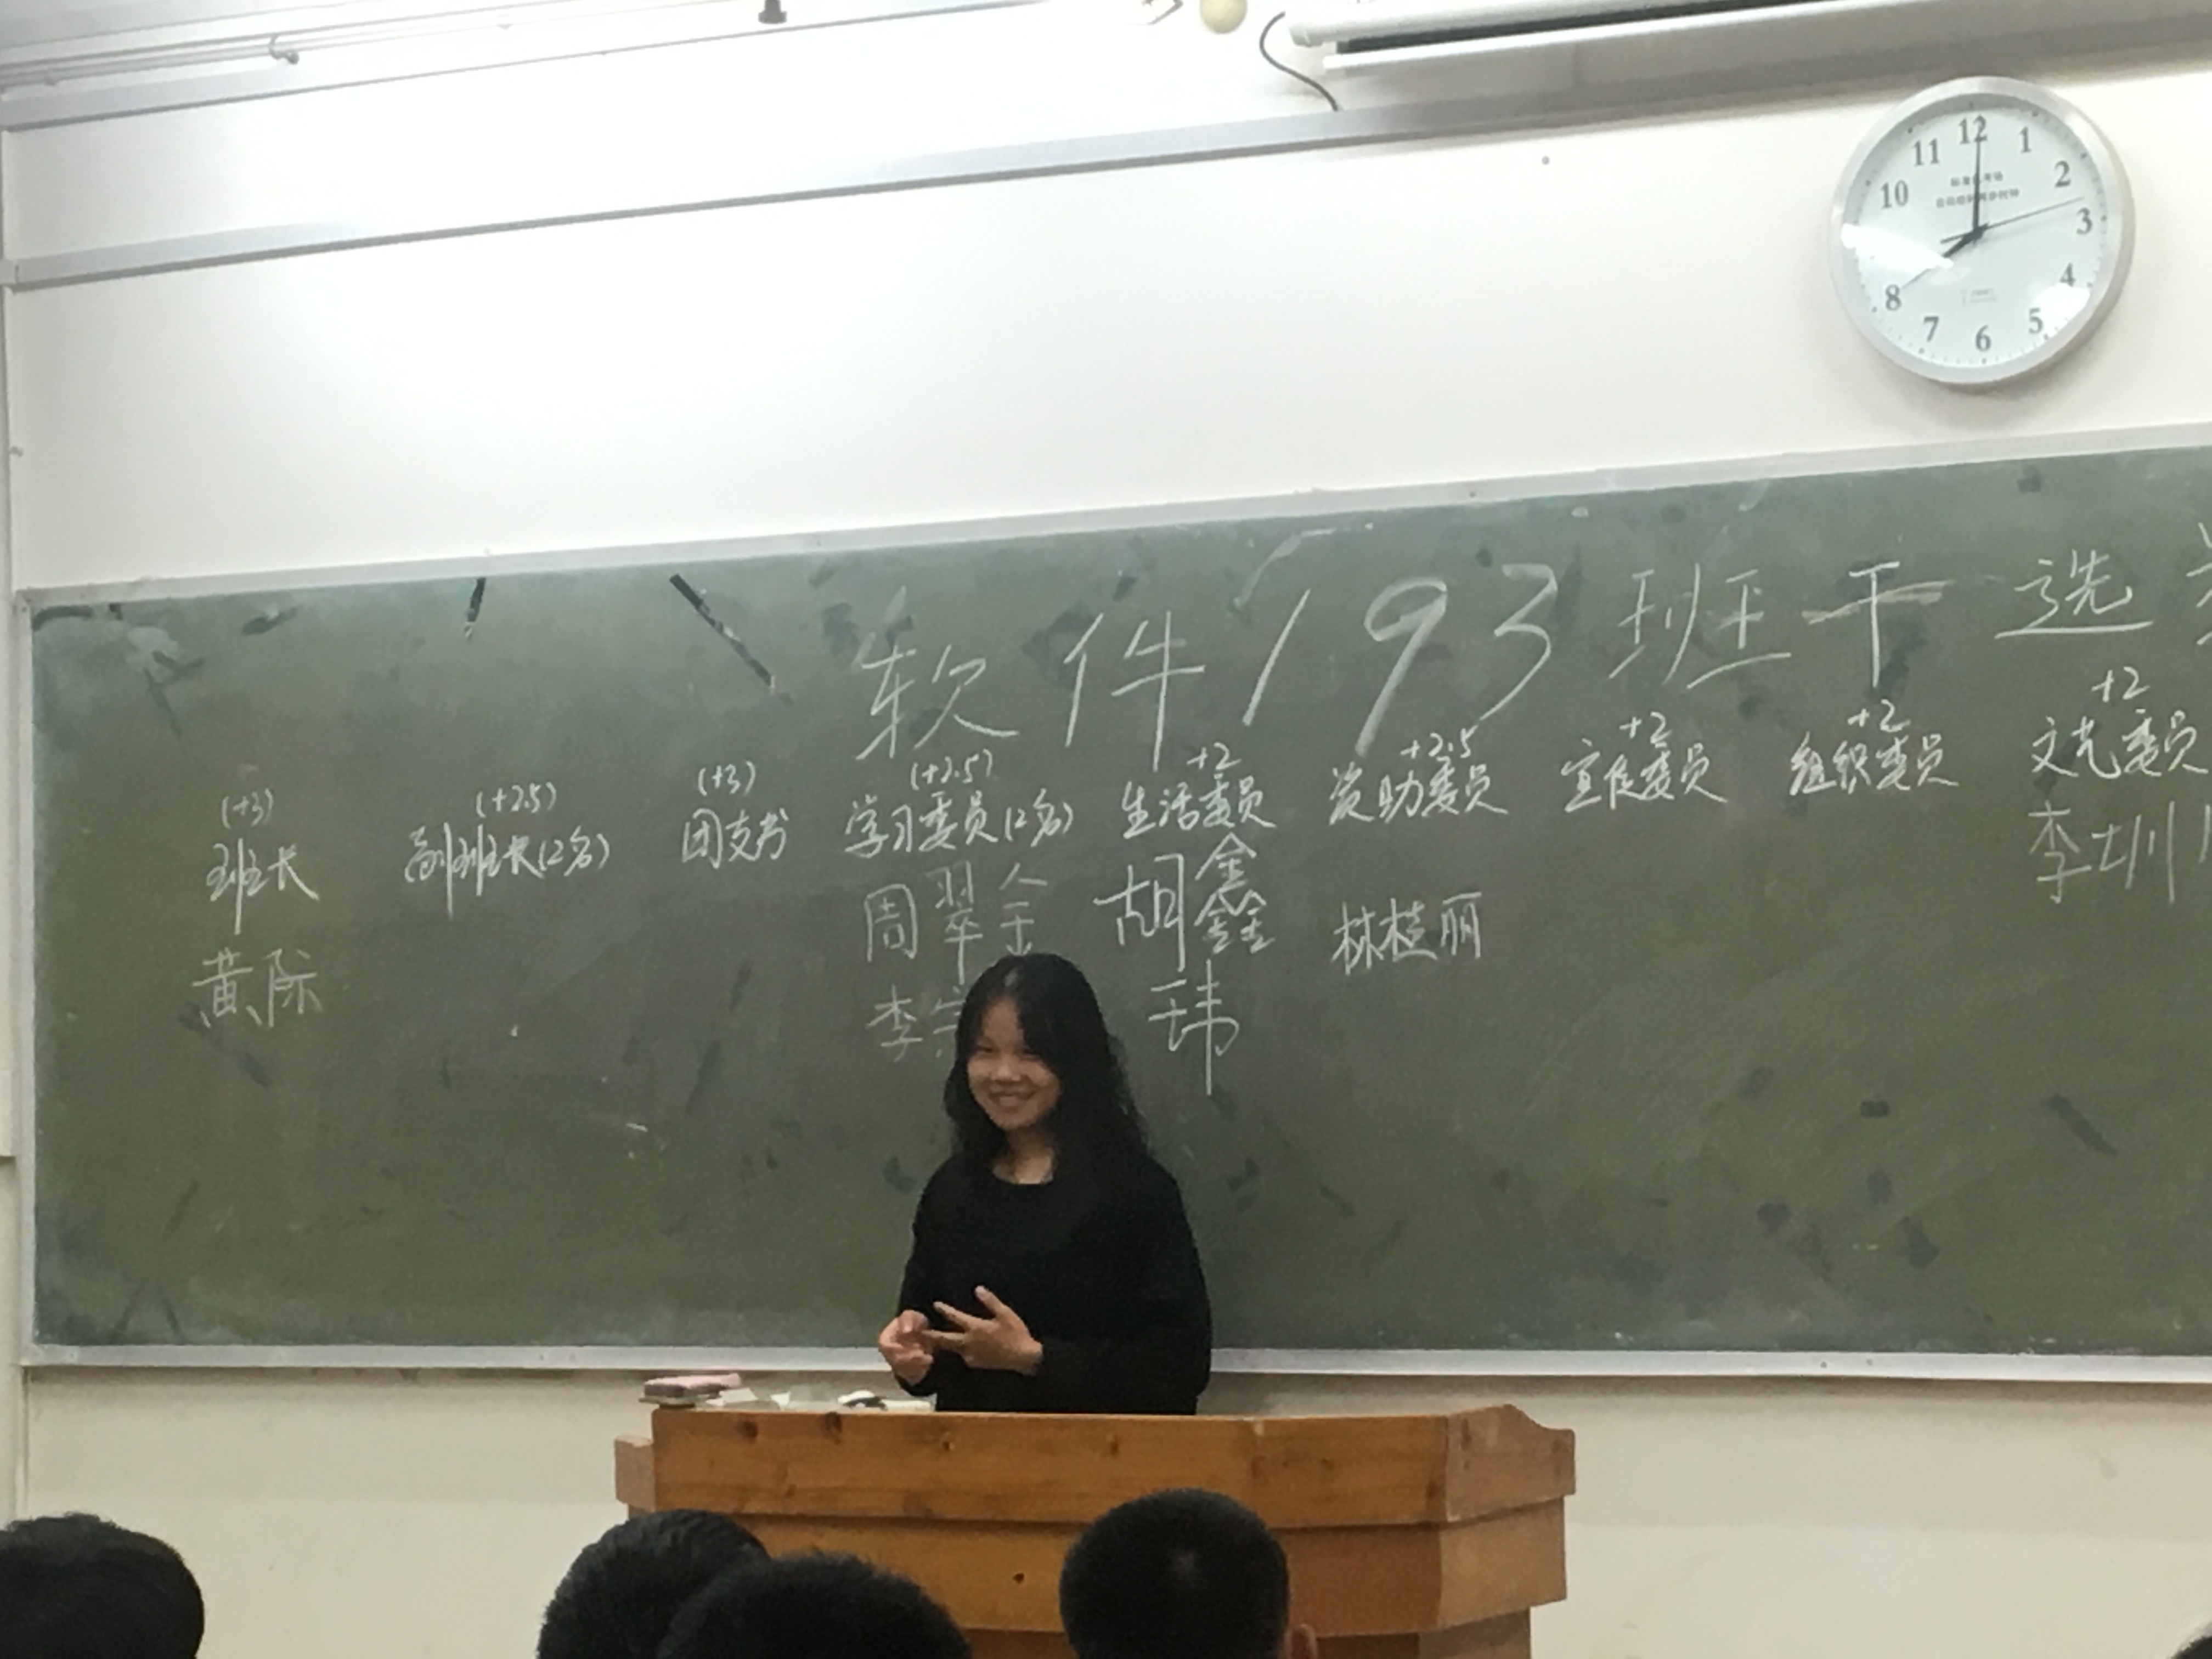 12
1
2
3
4
5
6
7
8
10
11
软件193班干选
(+3)
班长
黄际
(+2.5)
副班长(2名)
(+3)
团支书
(+2.5)
学习委员(2名)
周翠金
李
+2
生活委员
胡鑫
玮
+2.5
资助委员
林桂丽
+2
宣传委员
+2
组织委员
+2
文艺委员
李圳